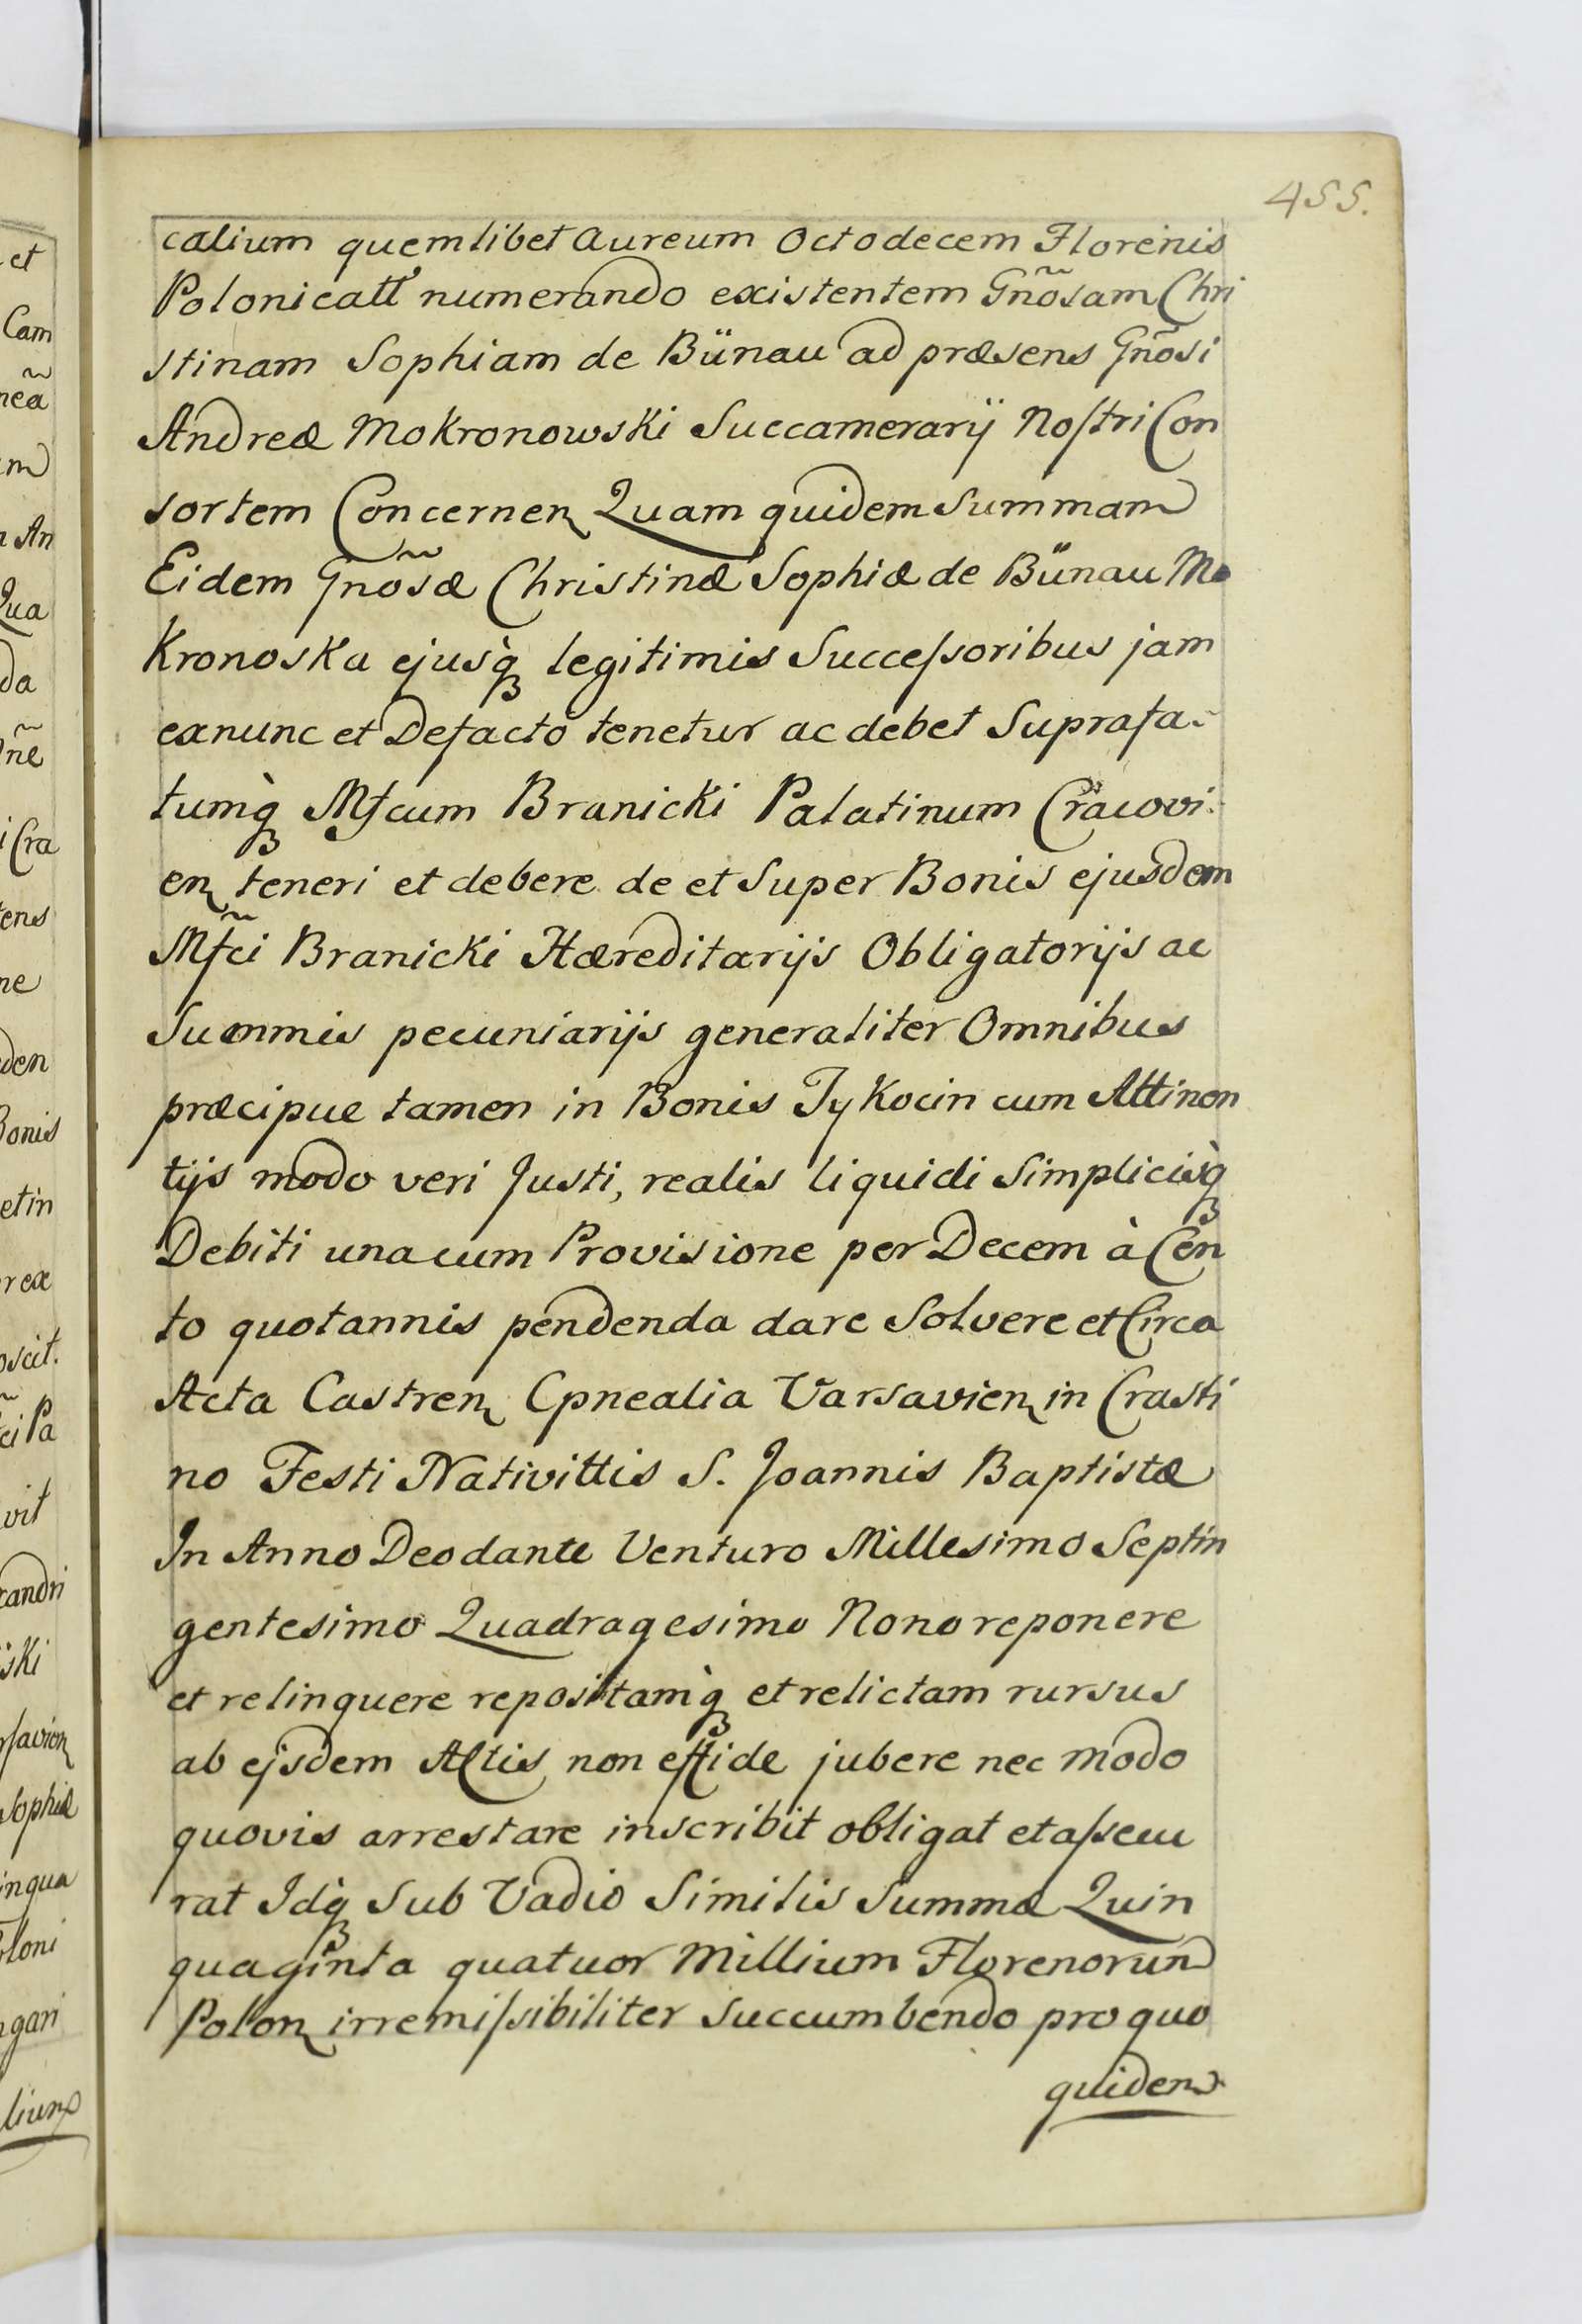 455.
calium quemlibet Aureum Octodecem Florenis
Polonicatt numerando existentem Gñosam Chri
stinam Sophiam de Bünau ad præsens Gñosi
Andreæ Mokronowski Succamerarij Noſtri Con
sortem Concernen Quam quidem Summam
Eidem Gñosæ Christinæ Sophiæ de Bünau Mo
Kronoska ejusq̀ legitimis Succeſsoribus jam
exnunc et Defacto tenetur ac debet Suprafa-
tumq̀ Mfcum Branicki Palatinum Cracovi-
en teneri et debere de et Super Bonis ejusdem
Mfc̃i Branicki Hæreditarijs Obligatorijs ac
Summis pecuniarijs generaliter Omnibus
præcipue tamen in Bonis Tykocin cum Attinen
tijs modo veri Justi, realis liquidi Simplicisq̀
Debiti unacum Provisione per Decem à Cen
to quotannis pendenda dare Solvere et Circa
Acta Castren Cpnealia Varsavien in Crasti
no Festi Nativittis S. Joannis Baptistæ
In Anno Deodante Venturo Millesimo Septin
gentesimo Quadragesimo Nono reponere
et relinquere repositamq̀ et relictam rursus
ab ejsdem Actis non jubere nec modo
quovis arrestare inscribit obligat et aſsecu
rat Idq̀ Sub Vadio Similis Summæ Quin
quaginta quatuor Millium Florenorum
Polon irremiſsibiliter Succumbendo pro quo
quidem